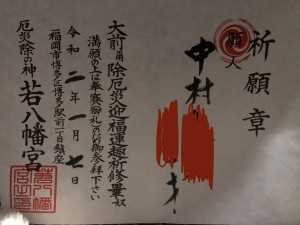 祈願章
願人
中村
大前爾除厄災迎福運趣祈修畢奴
満願の上は奉賽
御参拝下さい
令和二年一月七日
福岡市博多区博多駅前一丁目鎮座
厄災除の神
若八幡宮